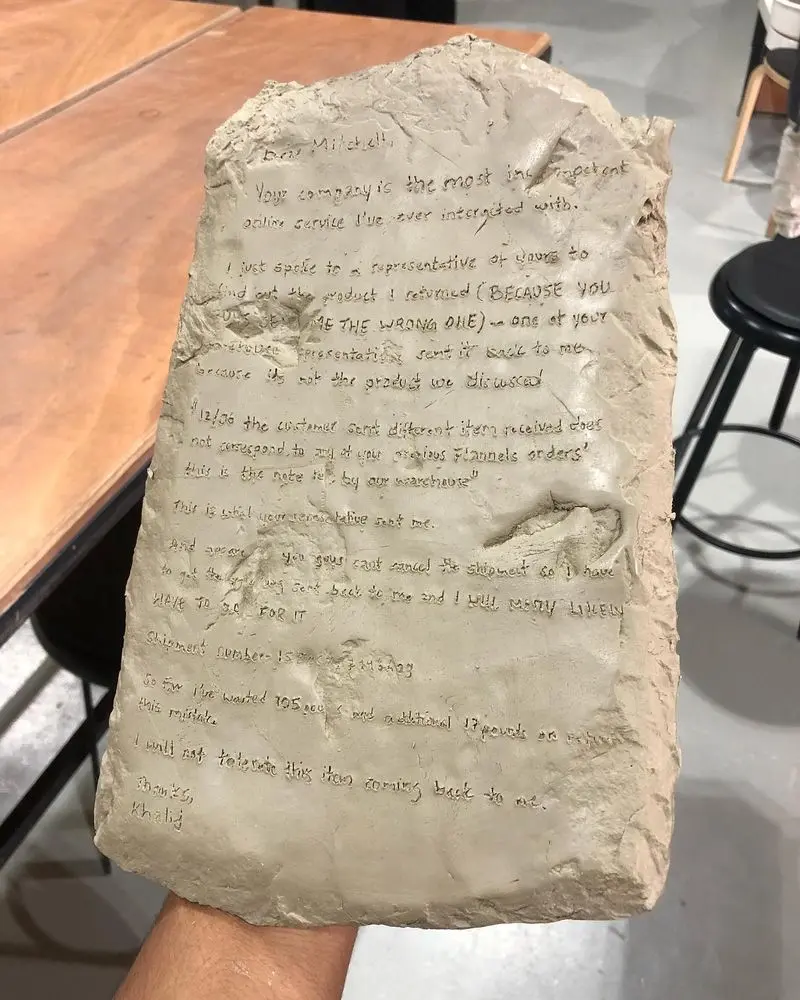 Dear Mitchell,
Your company is the most incompetent
online service I've ever interacted with.
I just spoke to a representative of yours to
find out the product I returned (BECAUSE YOU
ME THE WRONG ONE) - one of your
warehouse representatives sent it back to me
because its not the product we discussed
"12/06 the customer sent different item received does
not correspond to any of your previous Flannels orders"
this is the note by our warehouse"
This is what your representative sent me.
And you guys cant cancel the shipment so I have
to get the sent back to me and I WILL MOSTLY LIKELY
HAVE TO FOR IT
Shipment number-
So far I've wasted 105 and additional 17 pounds on return
this mistake
I will not tolerate this item coming back to me.
Thanks,
Khalij